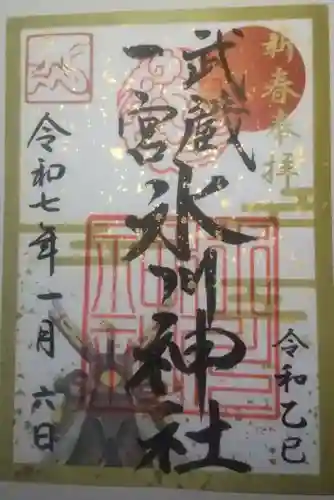 新春奉拝
武蔵
一宮
氷川神社
令和七年一月六日
令和乙巳